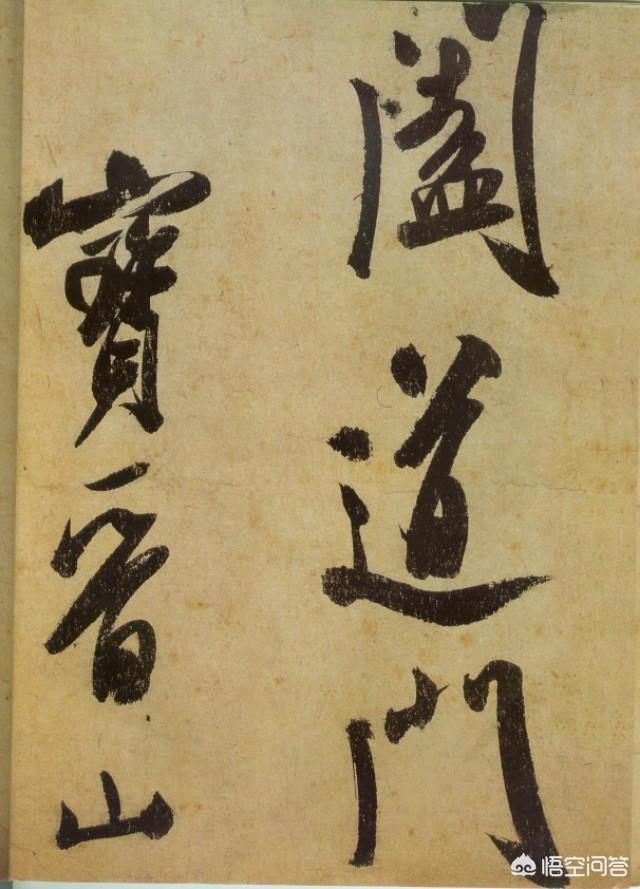 阖道門
寶晉山
悟空问答